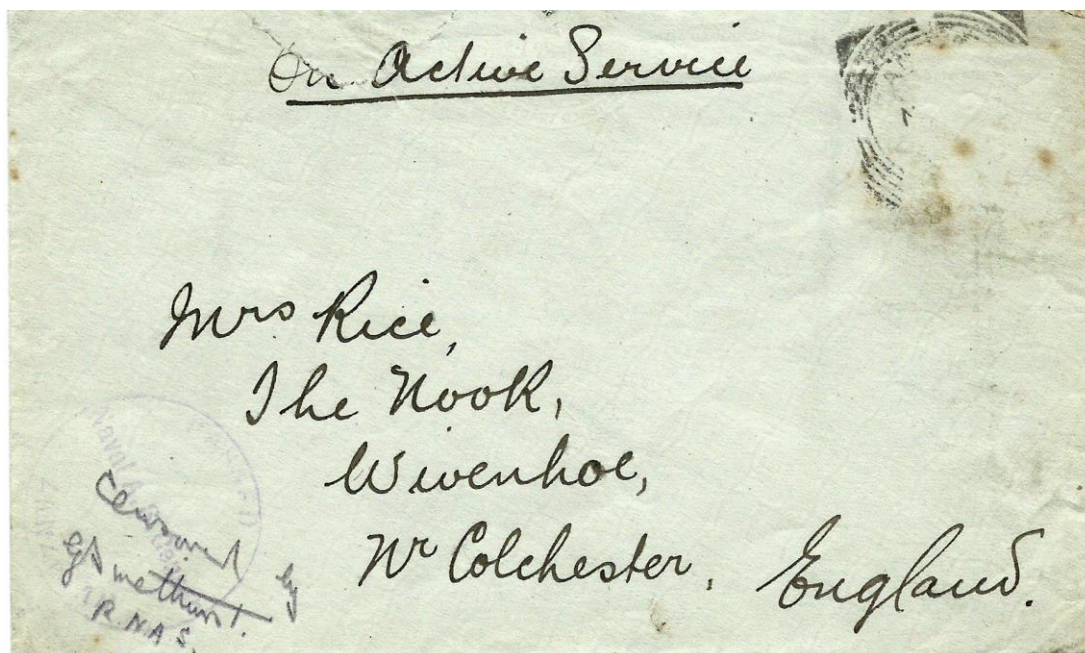 On Active Service
Mrs Rice,
The Nook,
Wivenhoe,
Nr Colchester,
England.
Naval
Censored by
R.N.A.S.